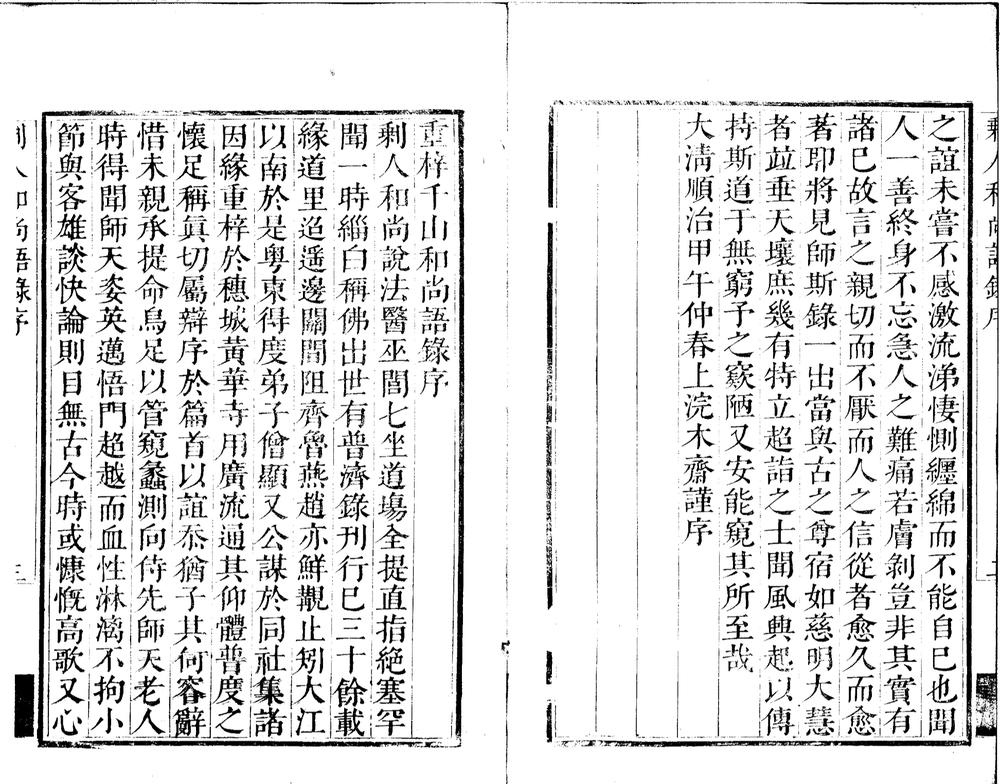 之誼未嘗不感激流涕悽惻纏綿而不能自已也聞
人一善終身不忘急人之難痛若膚剝豈非其實有
諸已故言之親切而不厭而人之信從者愈久而愈
著耶將見師斯錄一出當與古之尊宿如慈明大慧
者竝垂天壤庶幾有特立超詣之士聞風興起以傳
持斯道于無窮予之窾陋又安能窺其所至哉
大清順治甲午仲春上浣木齋謹序
重梓千山和尚語錄序
剩人和尚說法醫巫閭七坐道場全提直指絕塞罕
聞一時緇白稱佛出世有普濟錄刊行已三十餘載
緣道里迢遥邊關間阻齊魯燕趙亦鮮覯止矧大江
以南於是粵東得度弟子僧顯又公謀於同社集諸
因緣重梓於穗城黃華寺用廣流通其仰體普度之
懷足稱眞切屬辯序於篇首以誼忝猶子其何容辭
惜未親承提命烏足以管窺蠡測向侍先師天老人
時得聞師天姿英邁悟門超越而血性淋漓不拘小
節與客雄談快論則目無古今時或慷慨高歌又心
剩人和尚語錄序
三